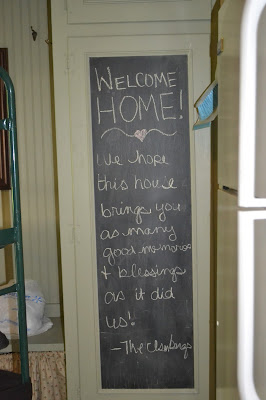 WELCOME
HOME!
We hope
this house
brings you
as many
good memories
& blessings
as it did
us!
-The